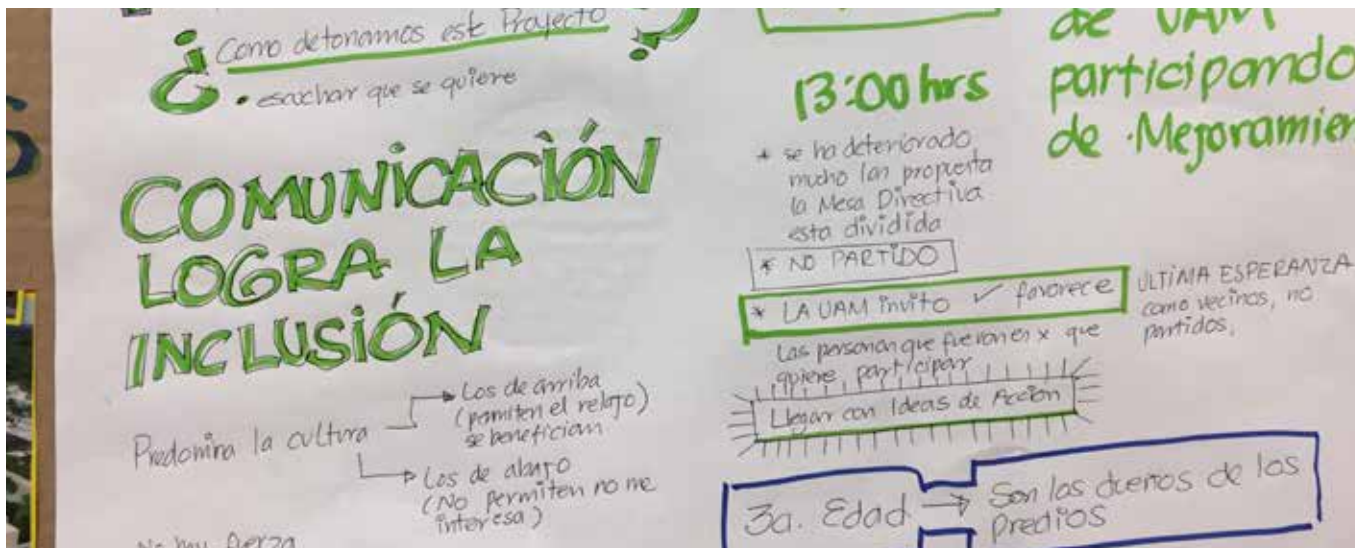 ¿Como detonamos este Proyecto?
• escuchar que se quiere
COMUNICACIÓN
LOGRA LA
INCLUSIÓN
Predomina la cultura
Los de arriba
(permiten el relajo)
se benefician
Los de abajo
(No permiten no me
interesa)
No hay fuerza
13:00 hrs
* se ha deteriorado
mucho las propuesta
la Mesa Directiva
esta dividida
* NO PARTIDO
* LA UAM invito ✓ favorece
Las personas que fueron es x que
quiere participar
Llegar con Ideas de Acción
3a. Edad → Son los dueños de los
predios
de UAM
participando
de Mejoramien
ULTIMA ESPERANZA
como vecinos, no
partidos,